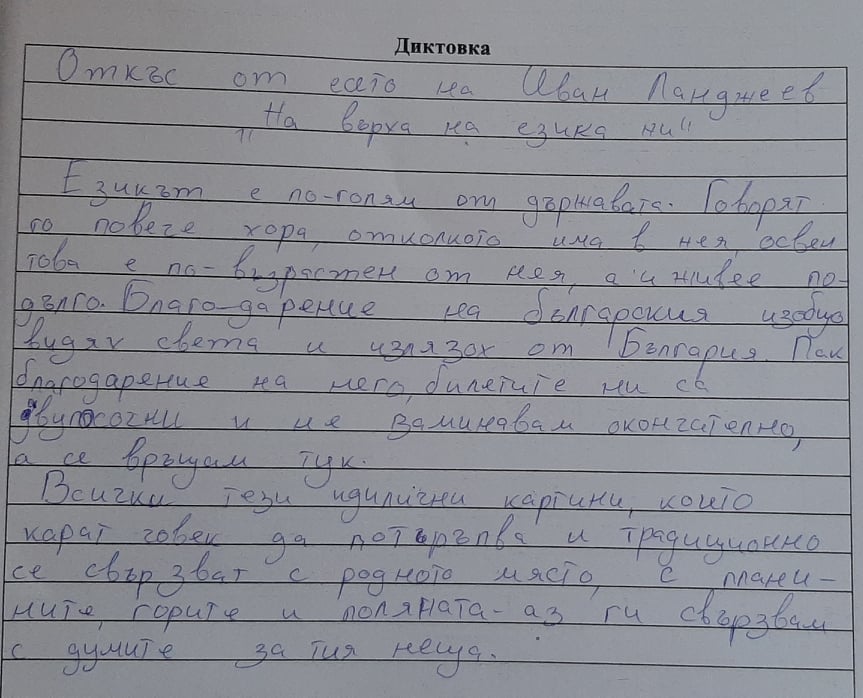 Диктовка
Откъс от есето на Иван Ланджев
"На върха на езика ни"
Езикът е по-голям от държавата. Говорят
го повече хора, отколкото има в нея, освен
това е по-възрастен от нея, а и живее по-
дълго. Благо-дарение на българския изобщо
видях света и излязох от България. Пак
благодарение на него, билетите ни са
двупосочни и не заминавам окончателно,
а се връщам тук.
Всички тези идилични картини, които
карат човек да потъръпва и традиционно
се свързват с родното място, с плани-
ните, горите и поляната - аз ги свързвам
с думите за тия неща.